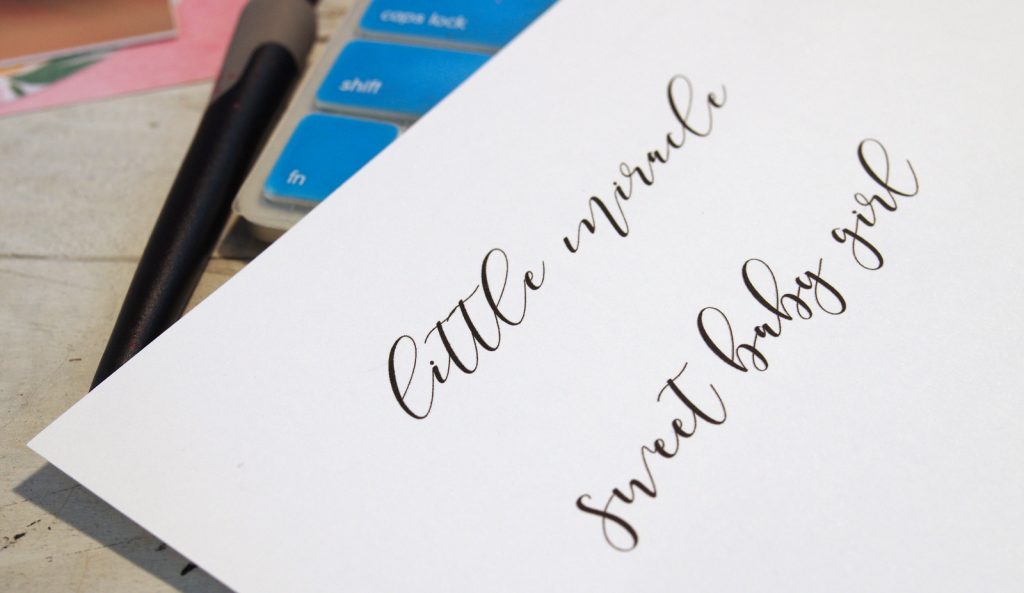 caps lock
shift
fn
little miracle
sweet baby girl